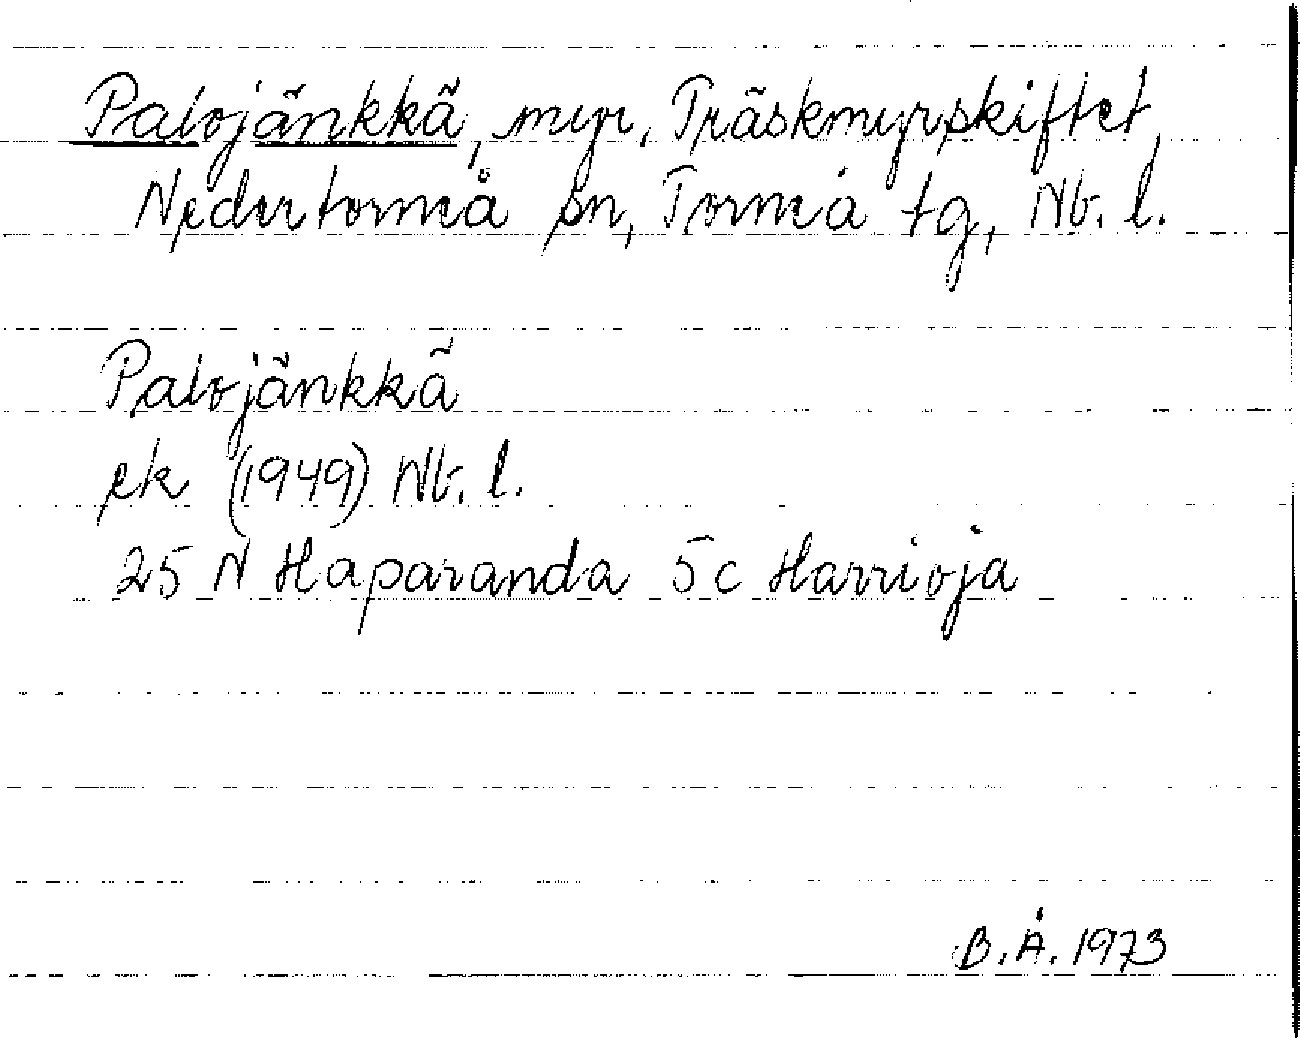 Palojänkkä, myr, Träskmyrskiftet,
Nedertorneå sn, Torneå tg, Nb. l.
Palojänkkä
ek (1949) Nb. l.
25 N Haparanda 5c Harrioja
B.Å. 1973